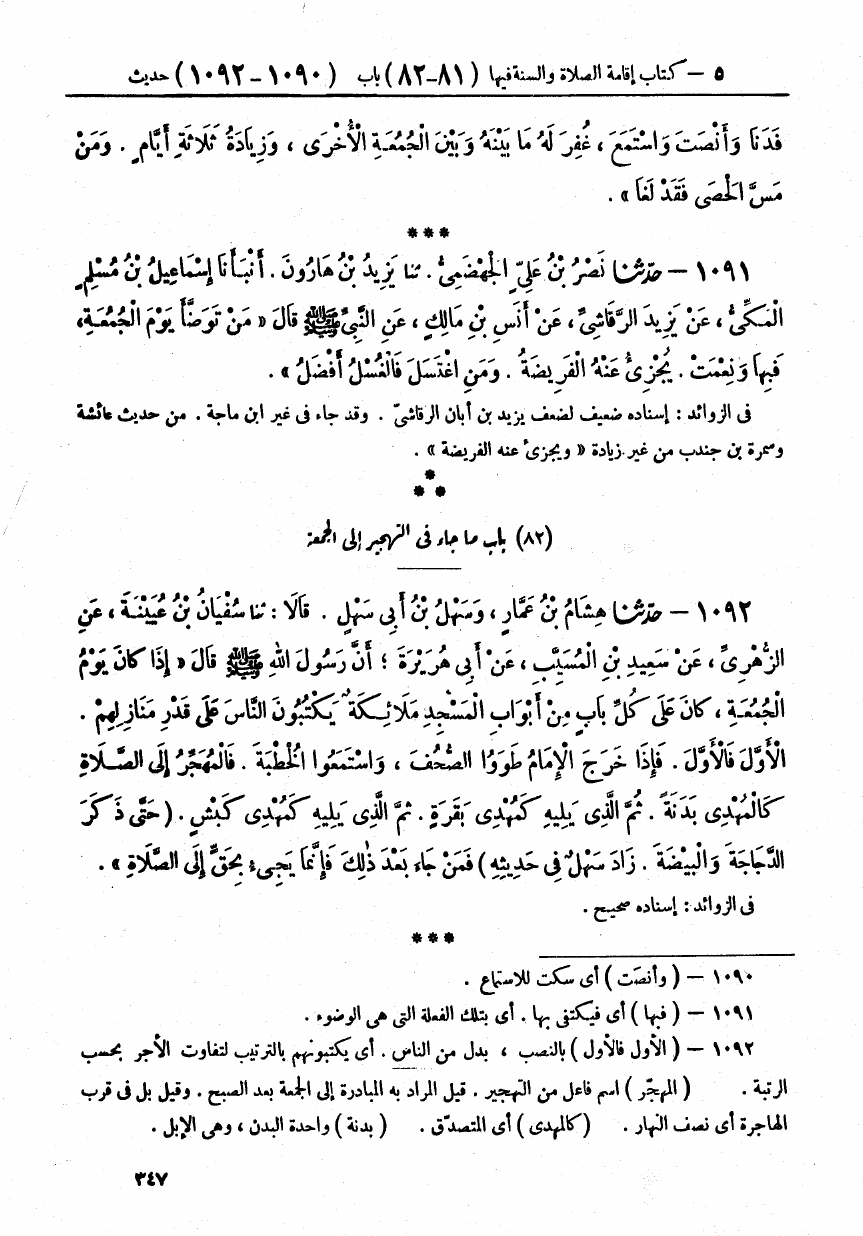 ٥ – كتاب إقامة الصلاة والسنة فيها (٨١–٨٢) باب (١٠٩٠–١٠٩٢) حديث
فَدَنَا وَأَنْصَتَ وَاسْتَمَعَ ، غُفِرَ لَهُ مَا بَيْنَهُ وَبَيْنَ الْجُمُعَةِ الْأُخْرَى ، وَزِيَادَةُ ثَلَاثَةِ أَيَّامٍ . وَمَنْ
مَسَّ الْحَصَى فَقَدْ لَغَا » .
***
١٠٩١ – حدّثنا نَصْرُ بْنُ عَلِيٍّ الْجَهْضَمِيُّ . ثنا يَزِيدُ بْنُ هَارُونَ . أَنْبَأَنَا إِسْمَاعِيلُ بْنُ مُسْلِمٍ
الْمَكِّيُّ ، عَنْ يَزِيدَ الرَّقَاشِيِّ ، عَنْ أَنَسِ بْنِ مَالِكٍ ، عَنِ النَّبِيِّ ﷺ قَالَ « مَنْ تَوَضَّأَ يَوْمَ الْجُمُعَةِ ،
فَبِهَا وَنِعْمَتْ . يُجْزِئُ عَنْهُ الْفَرِيضَةُ . وَمَنِ اغْتَسَلَ فَالْغُسْلُ أَفْضَلُ » .
فى الزوائد : إسناده ضعيف لضعف يزيد بن أبان الرقاشىّ . وقد جاء فى غير ابن ماجة . من حديث عائشة
وسمرة بن جندب من غير زيادة « ويجزئ عنه الفريضة » .
*
* *
(٨٢) باب ما جاء فى التهجير إلى الجمعة
١٠٩٢ – حدّثنا هِشَامُ بْنُ عَمَّارٍ ، وَسَهْلُ بْنُ أَبِى سَهْلٍ . قَالَا : ثنا سُفْيَانُ بْنُ عُيَيْنَةَ ، عَنِ
الزُّهْرِىِّ ، عَنْ سَعِيدِ بْنِ الْمُسَيَّبِ ، عَنْ أَبِى هُرَيْرَةَ ؛ أَنَّ رَسُولَ اللهِ ﷺ قَالَ « إِذَا كَانَ يَوْمُ
الْجُمُعَةِ ، كَانَ عَلَى كُلِّ بَابٍ مِنْ أَبْوَابِ الْمَسْجِدِ مَلَائِكَةٌ يَكْتُبُونَ النَّاسَ عَلَى قَدْرِ مَنَازِلِهِمْ .
الْأَوَّلَ فَالْأَوَّلَ . فَإِذَا خَرَجَ الْإِمَامُ طَوَوُا الصُّحُفَ ، وَاسْتَمَعُوا الْخُطْبَةَ . فَالْمُهَجِّرُ إِلَى الصَّلَاةِ
كَالْمُهْدِى بَدَنَةً . ثُمَّ الَّذِى يَلِيهِ كَمُهْدِى بَقَرَةٍ . ثُمَّ الَّذِى يَلِيهِ كَمُهْدِى كَبْشٍ . (حَتَّى ذَكَرَ
الدَّجَاجَةَ وَالْبَيْضَةَ . زَادَ سَهْلٌ فِى حَدِيثِهِ) فَمَنْ جَاءَ بَعْدَ ذٰلِكَ فَإِنَّمَا يَجِىءُ بِحَقٍّ إِلَى الصَّلَاةِ » .
فى الزوائد : إسناده صحيح .
***
١٠٩٠ – (وأنصت) أى سكت للاستماع .
١٠٩١ – (فبها) أى فيكتفى بها . أى بتلك الفعلة التى هى الوضوء .
١٠٩٢ – (الأول فالأول) بالنصب ، بدل من الناس . أى يكتبونهم بالترتيب لتفاوت الأجر بحسب
الرتبة . (المهجّر) اسم فاعل من التهجير . قيل المراد به المبادرة إلى الجمعة بعد الصبح . وقيل بل فى قرب
الهاجرة أى نصف النهار . (كالمهدى) أى المتصدّق . (بدنة) واحدة البدن ، وهى الإبل .
٣٤٧